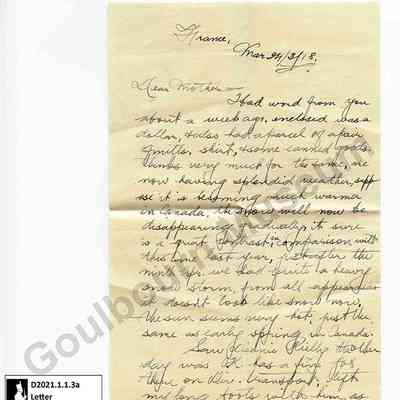 France,
Mar 24/3/18.
Dear Mother:-
I had word from you
about a week ago, enclosed was a
dollar, & also had a parcel of a pair
of mitts, shirt, & some canned goods,
thanks very much for the same, we
now having splendid weather, supp
ose it is becoming much warmer
in Canada, the snow will now be
disappearing gradually, it sure
is a great contrast in comparison with
this time last year, just after the
we had quite a heavy
snow storm, from all appearances
it doesn't look like snow now,
the sun seems very hot, just the
same as early spring in Canada.
Saw Reilly the other
day was O.K has a fine job
there on Div. transport, left
my long boots with him as
Goulbourn Museum
D2021.1.1.3a
Letter